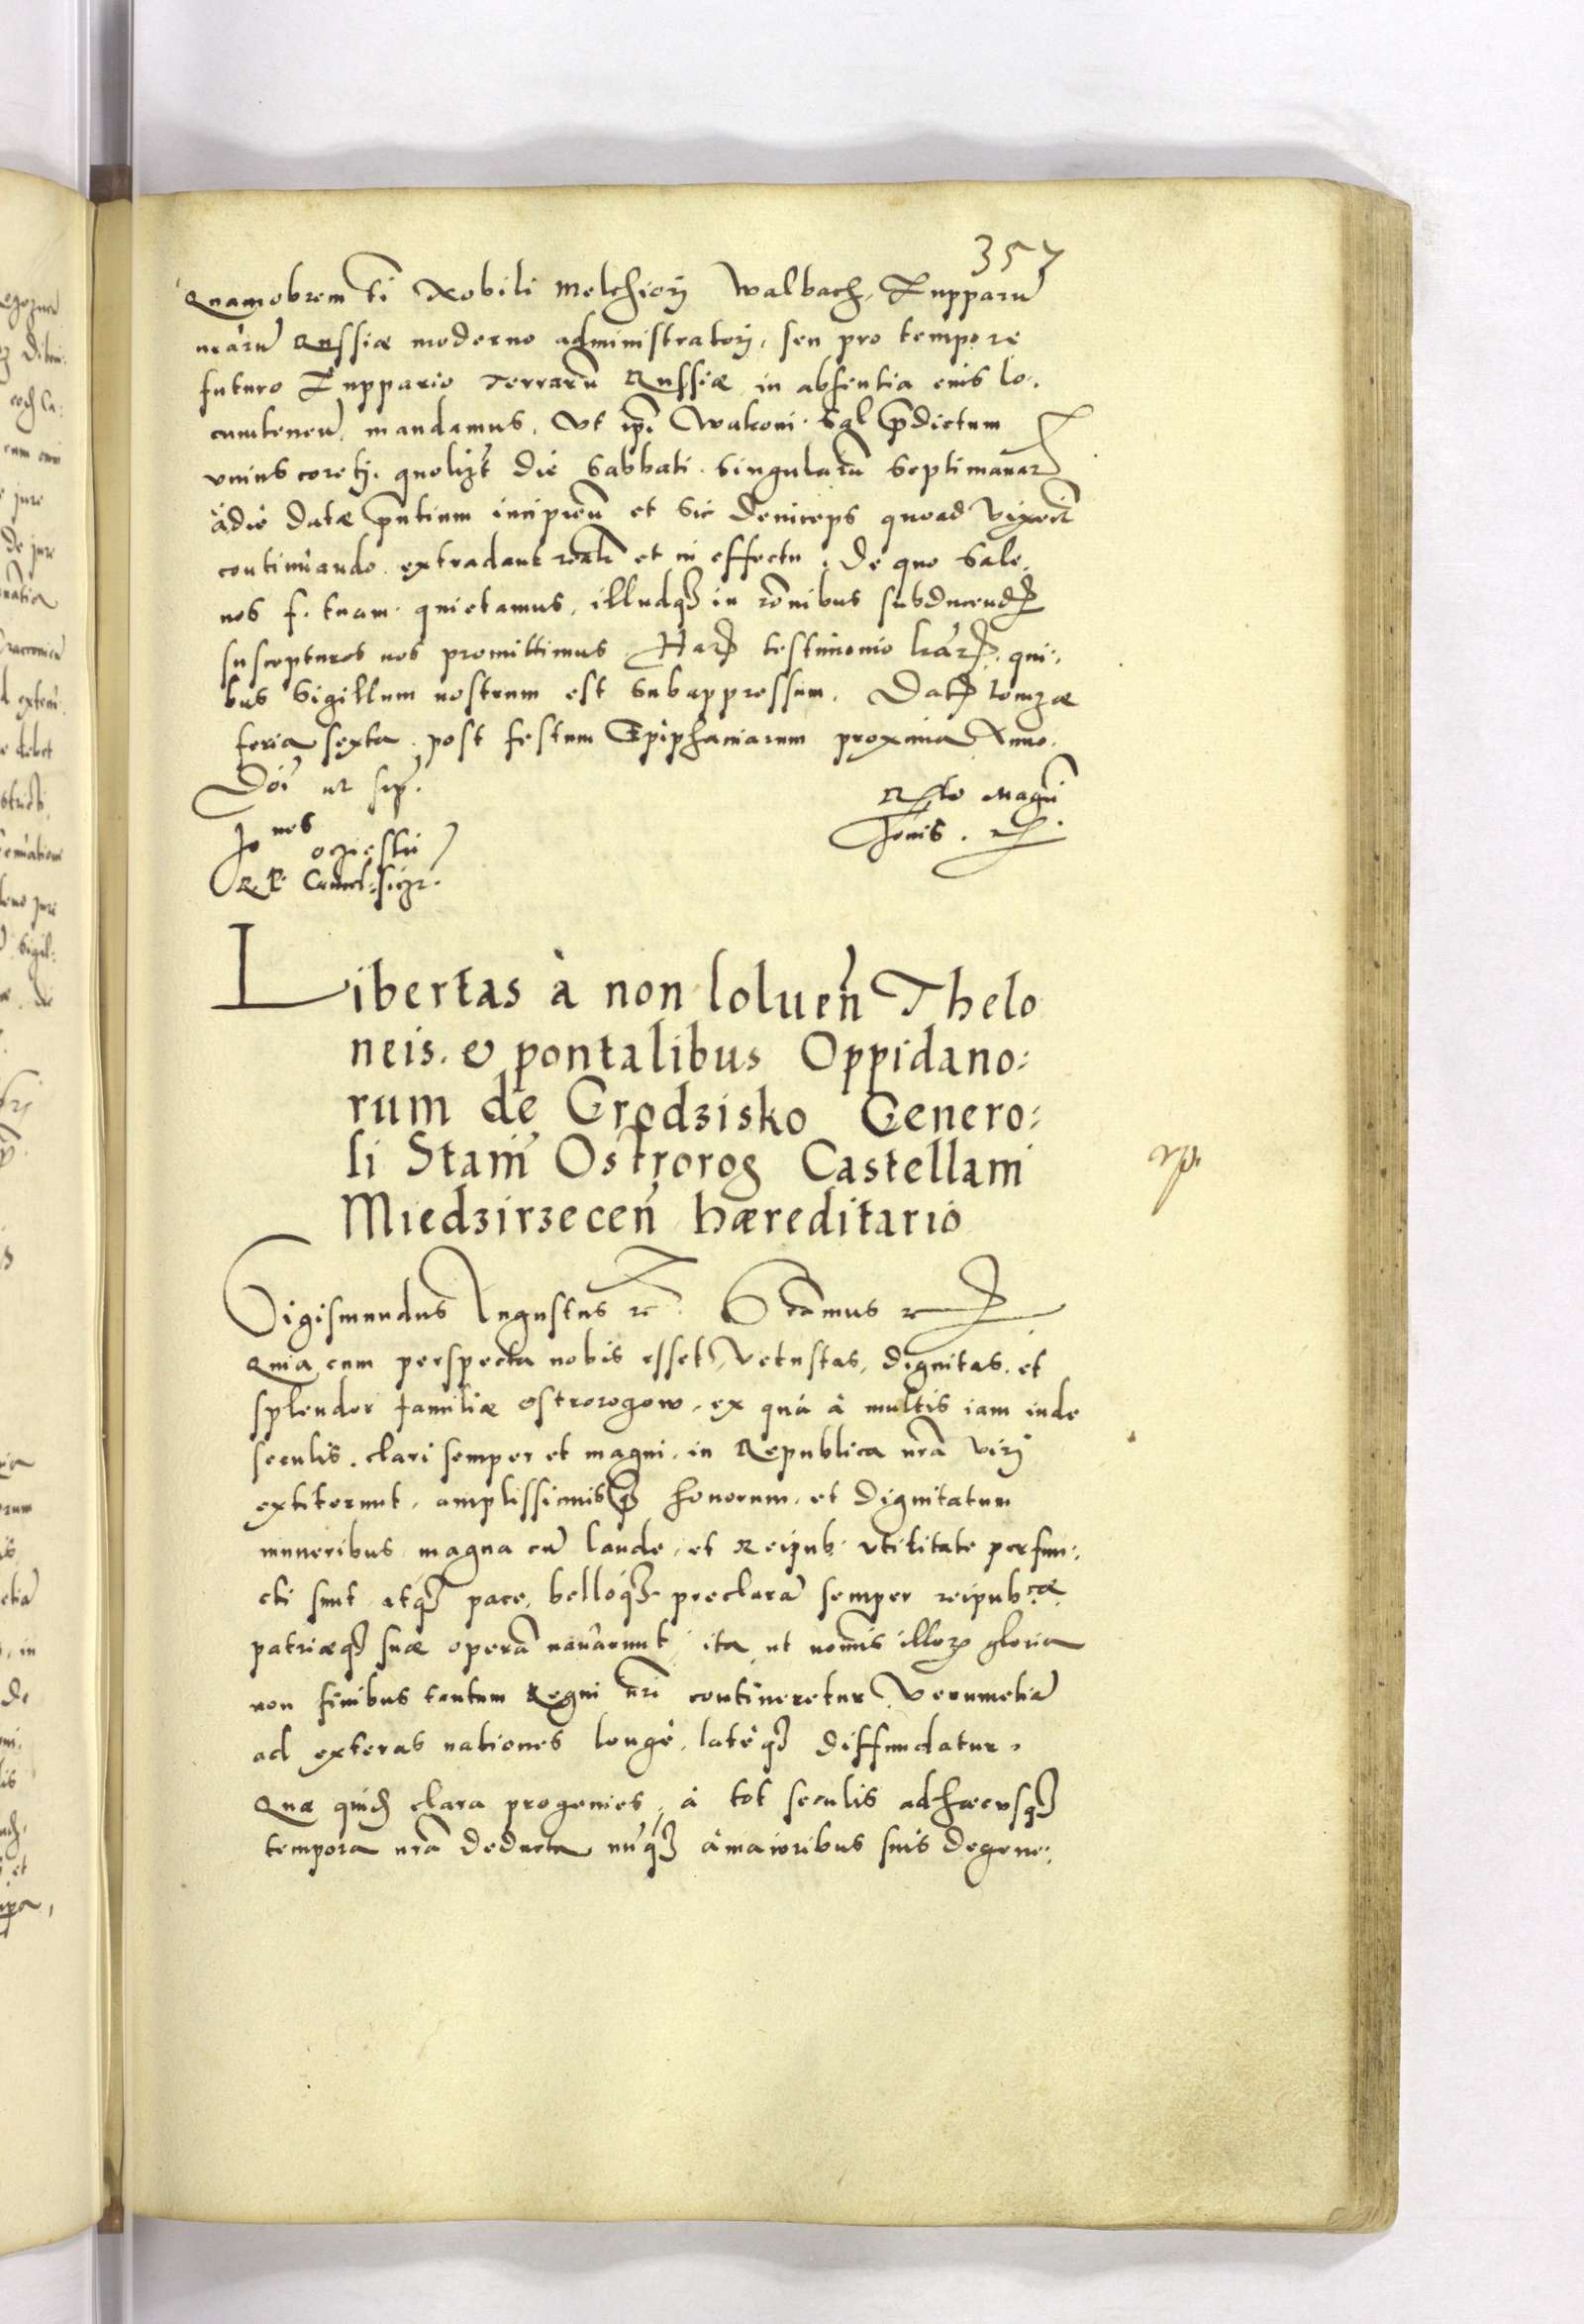 357
Quamobrem ti Nobili Melchiori Walbach Zupparū
nrārū Russiæ moderno administratori, seu pro tempore
futuro Zuppario Terrarū Russiæ in absentia eius lo:
cumtenen̄. mandamus, Vt ipi Wakoni Sal p̄dictum
vnius coretÿ. quolizt̄ die Sabbati singularū septimanarꝝ
à die datæ p̄ntium incipien̄ et sic deniceps quoad Vixerit̄
continuando extradant realr̄ et in effectu. De quo Sale
nos f. tuam quietamus, illudqꝫ in rōnibus subducendꝭ
suscepturos nos promittimus Harꝝ testimonio lrārꝝ. qui:
bus Sigillum nostrum est Subappressum. Datꝭ Lomzæ
feria sexta post festum Epiphaniarum proxima Anno
Dōi ut sup̄.
Rlo Magci
Jonis.
Jones
ocziesski
R. P. Cancel: sszr.
Libertas à non soluen̄ Thelo
neis. & pontalibus Oppidano:
rum de Grodzisko Genero:
si Stani Ostrorog Castellani
Miedzirzecen̄ hæreditario
rp.
Sigismundus Augustus rc. Scāmus rc
Quia cum perspecta nobis esset Vetustas, dignitas, et
splendor familiæ ostrorogow, ex quà à multis iam inde
seculis. clari semper et magni, in Republica nrā Viri
extiterunt, amplissimisqꝫ honorum, et dignitatum
muneribus magna cū laude, et Reipub: vtilitate perfun:
cti sunt atqꝫ pace, belloqꝫ preclarā semper reipubcæ
patriæqꝫ suæ operā nauarunt, ita ut nomīs illorꝝ gloria
non finibus tantum Regni nrī contineretur Verumetiā
ad exteras nationes longè, latèqꝫ diffundatur.
Quæ quidꝫ clara progenies, à tot seculis adhæcvsqꝫ
tempora nrā deducta nūqꝫ à maioribus suis degene: